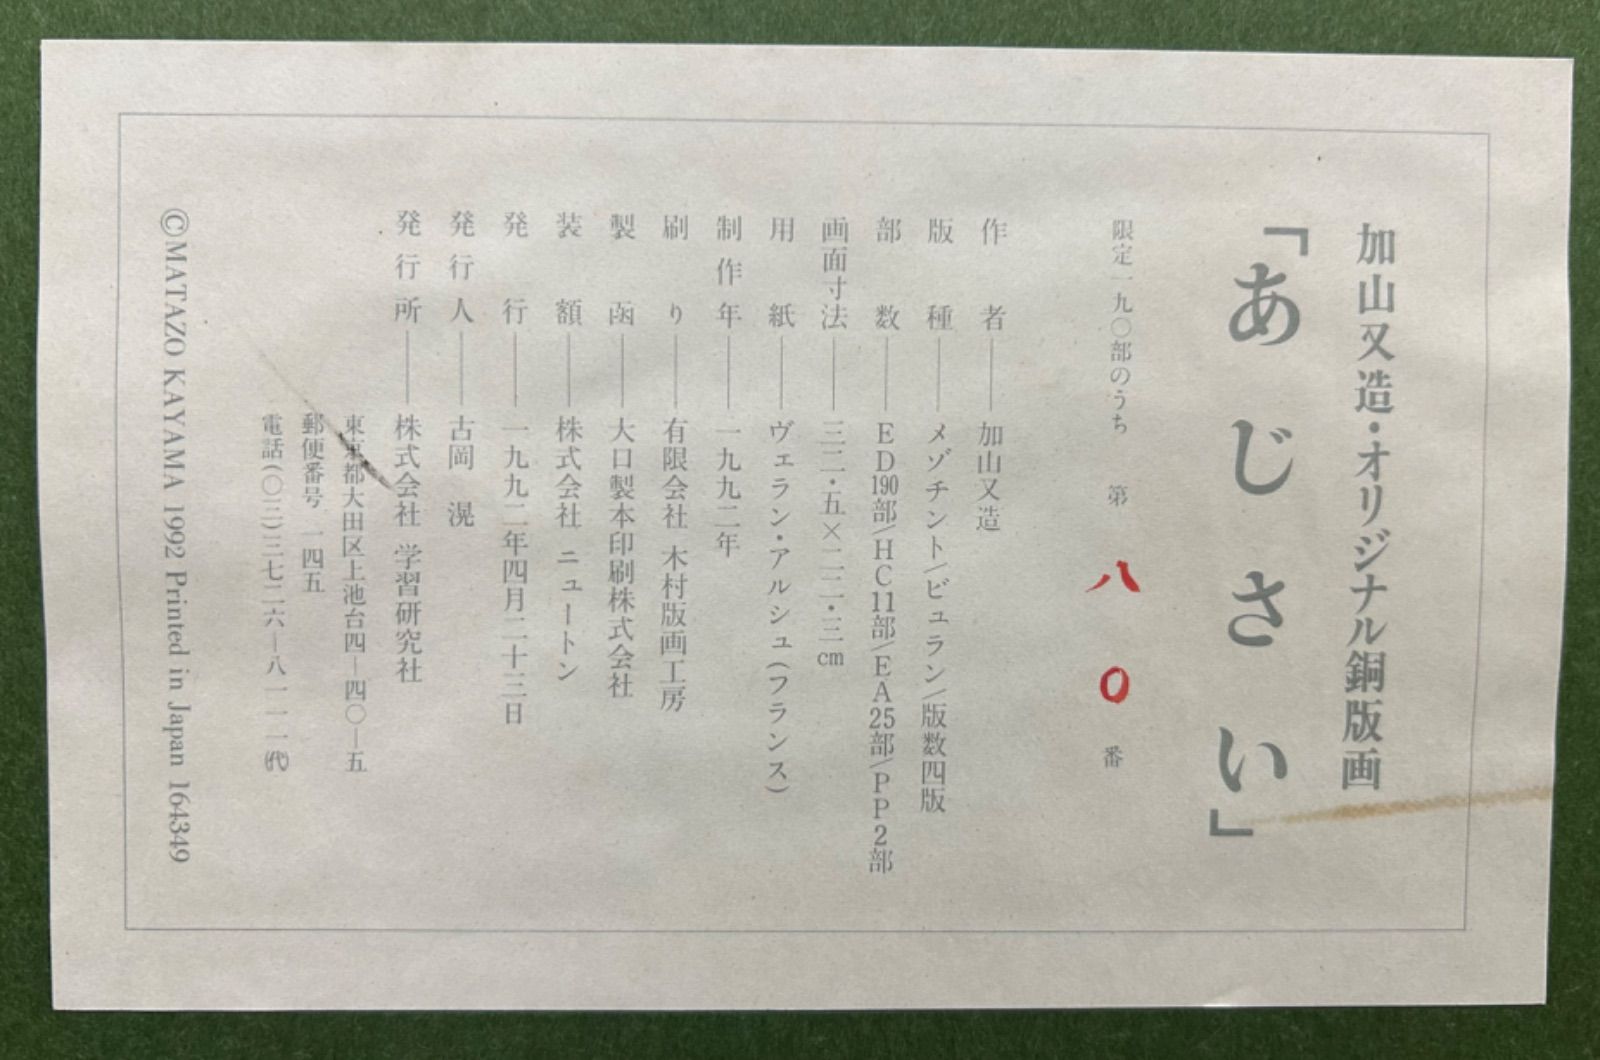 加山又造・オリジナル銅版画
「あじさい」
限定一九〇部のうち 第 八〇 番
作者――加山又造
版種――メゾチント/ビュラン/版数四版
部数――ED190部/HC11部/EA25部/PP2部
画面寸法――三二・五×二二・三cm
用紙――ヴェラン・アルシュ(フランス)
制作年――一九九二年
刷り――有限会社 木村版画工房
製函――大口製本印刷株式会社
装額――株式会社 ニュートン
発行――一九九二年四月二十三日
発行人――古岡 滉
発行所――株式会社 学習研究社
東京都大田区上池台四―四〇―五
郵便番号 一四五
電話(〇三)三七二六―八一一一(代)
©MATAZO KAYAMA 1992 Printed in Japan 164349